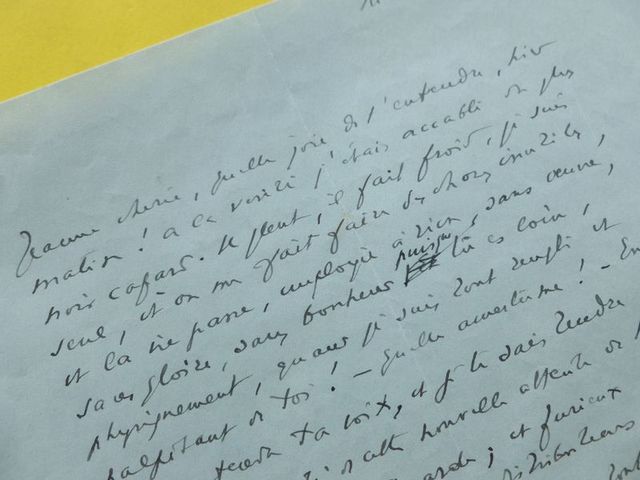 Jeanne chérie, quelle joie de t'entendre, hier
matin ! à la vérité j'étais accablé du plus
noir cafard. Il pleut, il fait froid, je suis
seul, et on me fait faire des choses inutiles,
et la vie passe, employée à rien, sans œuvre,
sans gloire, sans bonheur puisque tu es loin,
physiquement, quand je suis tout rempli et
palpitant de toi ! – Quelle amertume ! – En
ta voix, et je te sais tendre
cette nouvelle attente de
; et furieux